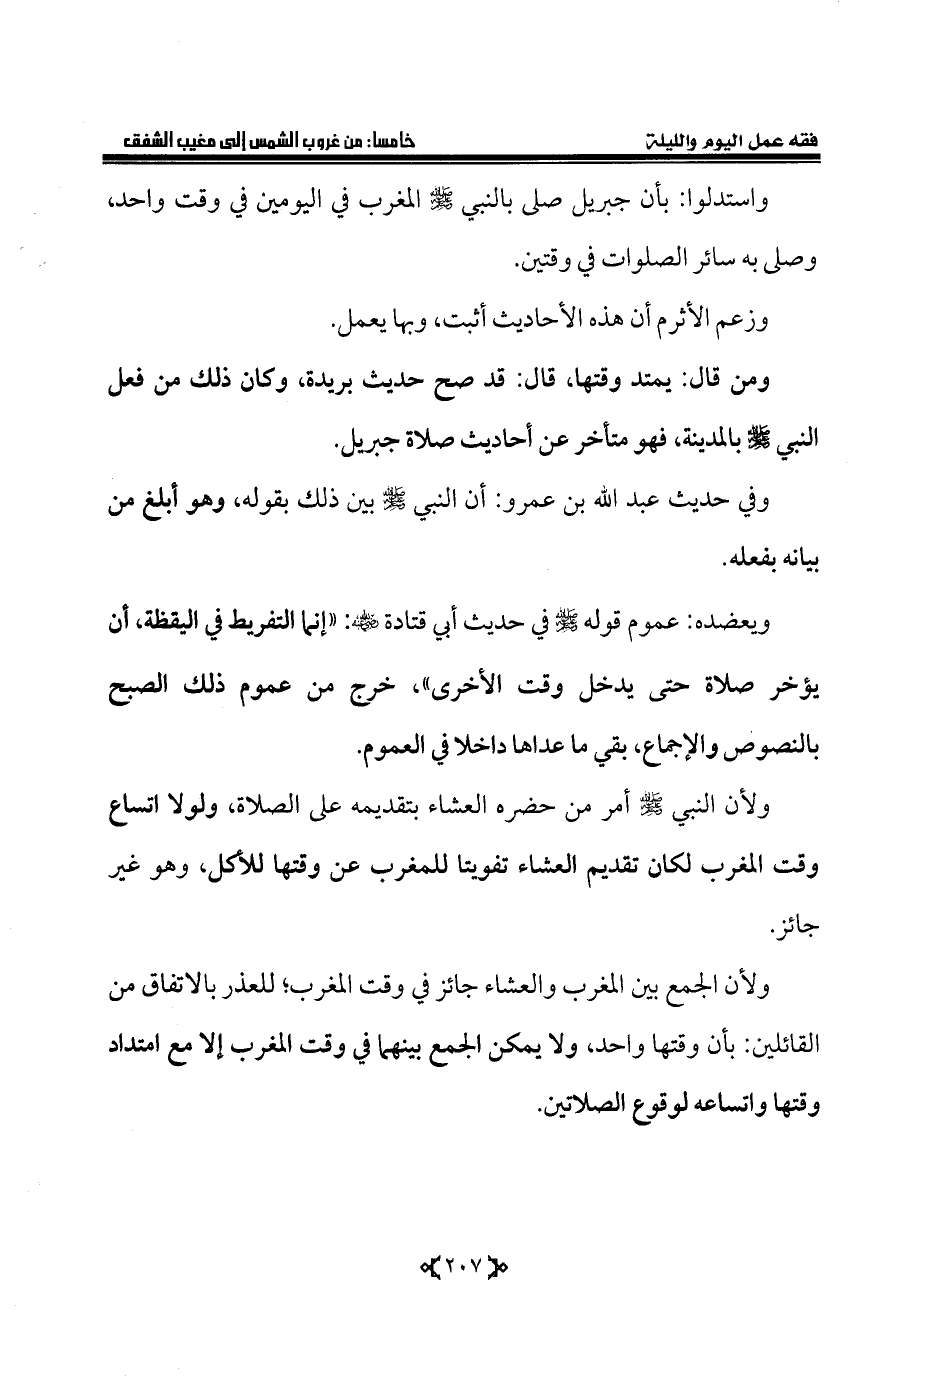 فقه عمل اليوم والليلة خامسا: من غروب الشمس إلى مغيب الشفق
واستدلوا: بأن جبريل صلى بالنبي ﷺ المغرب في اليومين في وقت واحد،
وصلى به سائر الصلوات في وقتين.
وزعم الأثرم أن هذه الأحاديث أثبت، وبها يعمل.
ومن قال: يمتد وقتها، قال: قد صح حديث بريدة، وكان ذلك من فعل
النبي ﷺ بالمدينة، فهو متأخر عن أحاديث صلاة جبريل.
وفي حديث عبد الله بن عمرو: أن النبي ﷺ بين ذلك بقوله، وهو أبلغ من
بيانه بفعله.
ويعضده: عموم قوله ﷺ في حديث أبي قتادة رضي الله عنه: «إنما التفريط في اليقظة، أن
يؤخر صلاة حتى يدخل وقت الأخرى»، خرج من عموم ذلك الصبح
بالنصوص والإجماع، بقي ما عداها داخلا في العموم.
ولأن النبي ﷺ أمر من حضره العشاء بتقديمه على الصلاة، ولولا اتساع
وقت المغرب لكان تقديم العشاء تفويتا للمغرب عن وقتها للأكل، وهو غير
جائز.
ولأن الجمع بين المغرب والعشاء جائز في وقت المغرب؛ للعذر بالاتفاق من
القائلين: بأن وقتها واحد، ولا يمكن الجمع بينهما في وقت المغرب إلا مع امتداد
وقتها واتساعه لوقوع الصلاتين.
﴿٢٠٧﴾